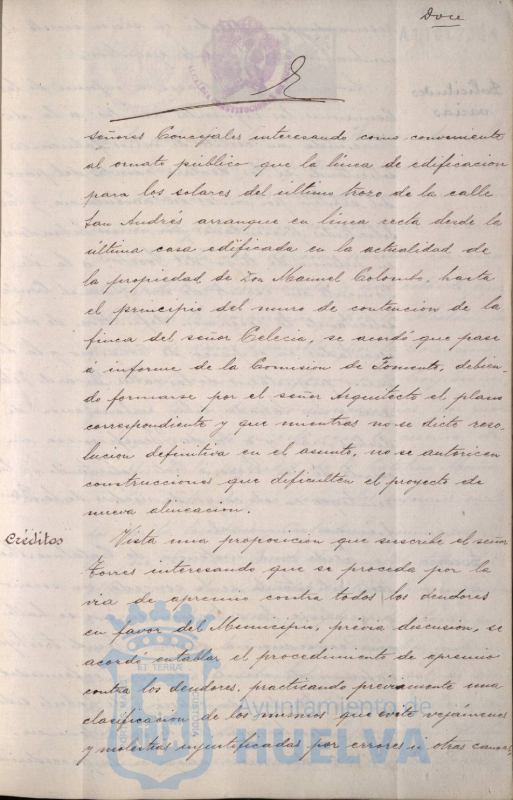 Doce
señores Concejales interesando como conveniente
al ornato público que la línea de edificacion
para los solares del último trozo de la calle
San Andrés arranque en línea recta desde la
última casa edificada en la actualidad de
la propiedad de Don Manuel Colombo, hasta
el principio del muro de contencion de la
finca del señor Celecia, se acordó que pase
á informe de la Comision de Fomento, debien-
do formarse por el señor Arquitecto el plano
correspondiente y que mientras no se dicte reso-
lucion definitiva en el asunto, no se autoricen
construcciones que dificulten el proyecto de
nueva alineacion.
Créditos
Vista una proposicion que suscribe el señor
Torres interesando que se proceda por la
via de apremio contra todos los deudores
en favor del Municipio, prévia discusion, se
acordó entablar el procedimiento de apremio
contra los deudores, practicando préviamente una
clasificacion de los mismos que evite vejámenes
y molestias injustificadas por errores ú otras causas,
Ayuntamiento de
HUELVA